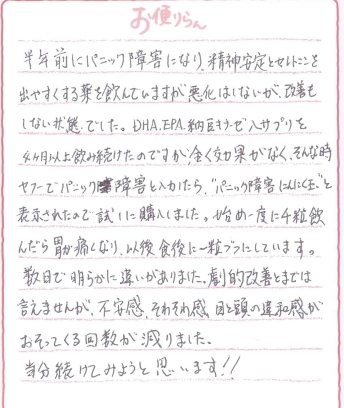 お便りらん
半年前にパニック障害になり、精神安定とセレトニンを
出やすくする薬を飲んでいますが悪化はしないが、改善も
しない状態でした。DHA.EPA.納豆キナーゼ入サプリを
4ヶ月以上飲み続けたのですが、全く効果がなく、そんな時
ヤフーでパニック障害と入れたら、"パニック障害にんにく玉"と
表示されたので試しに購入しました。始め一度に4粒飲
んだら胃が痛くなり、以後食後に一粒づつにしています。
数日で明らかに違いがありました。劇的改善とまでは
言えませんが、不安感、そわそわ感、目と頭の違和感が
おそってくる回数が減りました。
当分続けてみようと思います!!